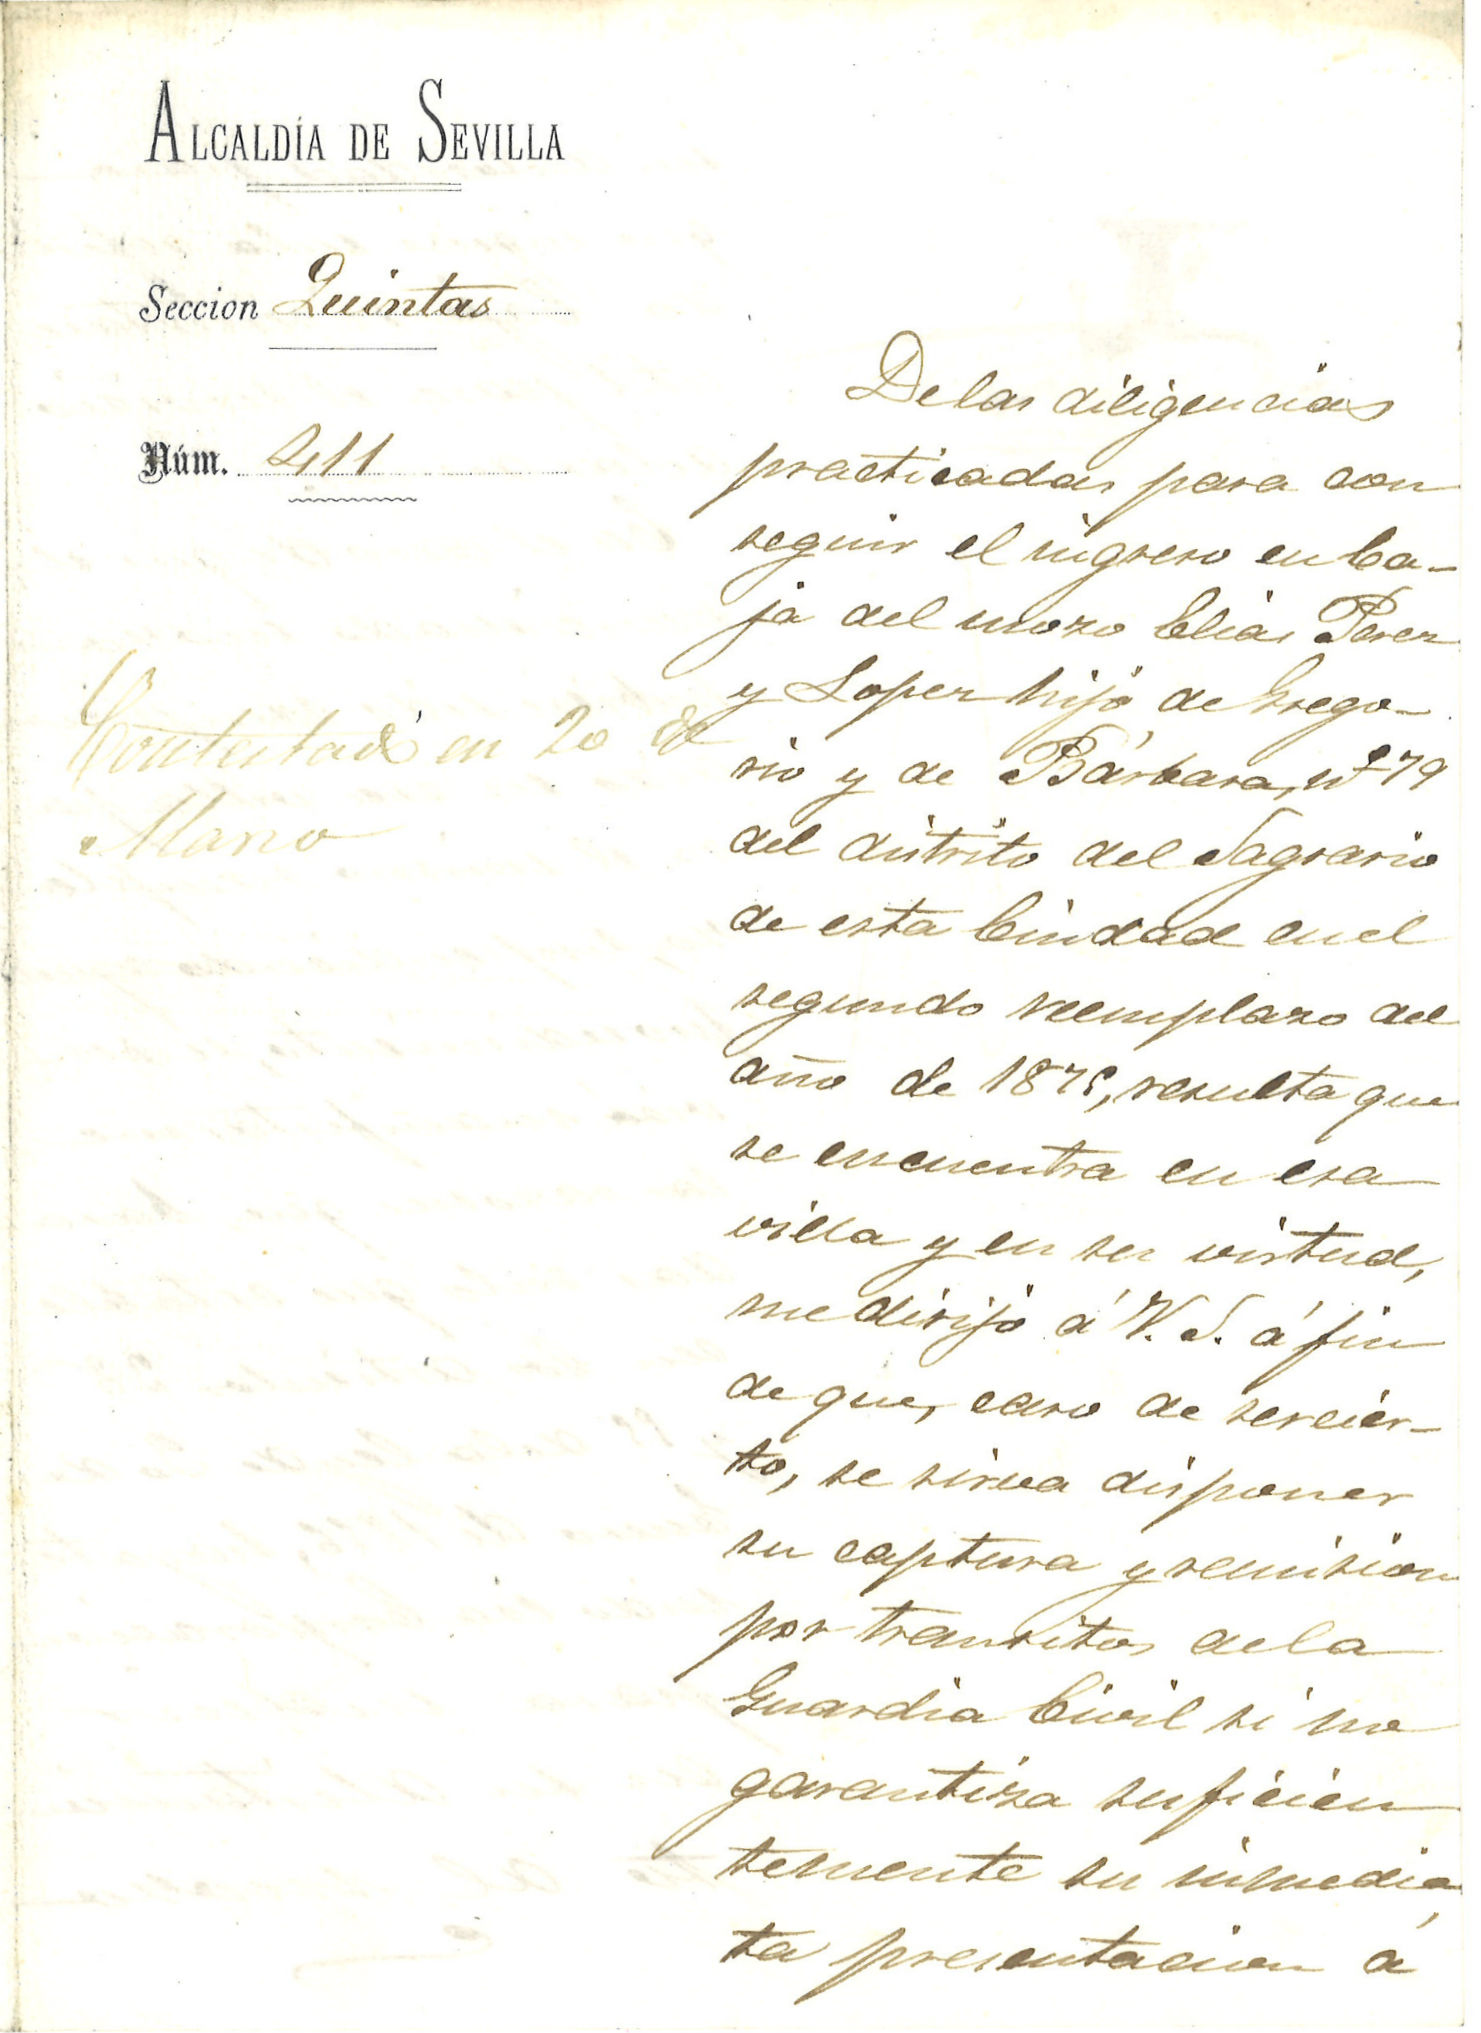 ALCALDÍA DE SEVILLA
Seccion Quintas
Núm. 411
Contestado en 20 de
Marzo
De las diligencias
practicadas para con
seguir el ingreso en Ca-
ja del mozo Elias Perez
y Lopez hijo de Grego-
rio y de Bárbara, nº 79
del distrito del Sagrario
de esta Ciudad en el
segundo reemplazo del
año de 1875, resulta que
se encuentra en esa
villa y en su virtud,
me dirijo á V. S. á fin
de que, caso de ser cier-
to, se sirva disponer
su captura y remision
por transitos de la
Guardia Civil si no
garantiza suficien
temente su inmedia
ta presentacion á